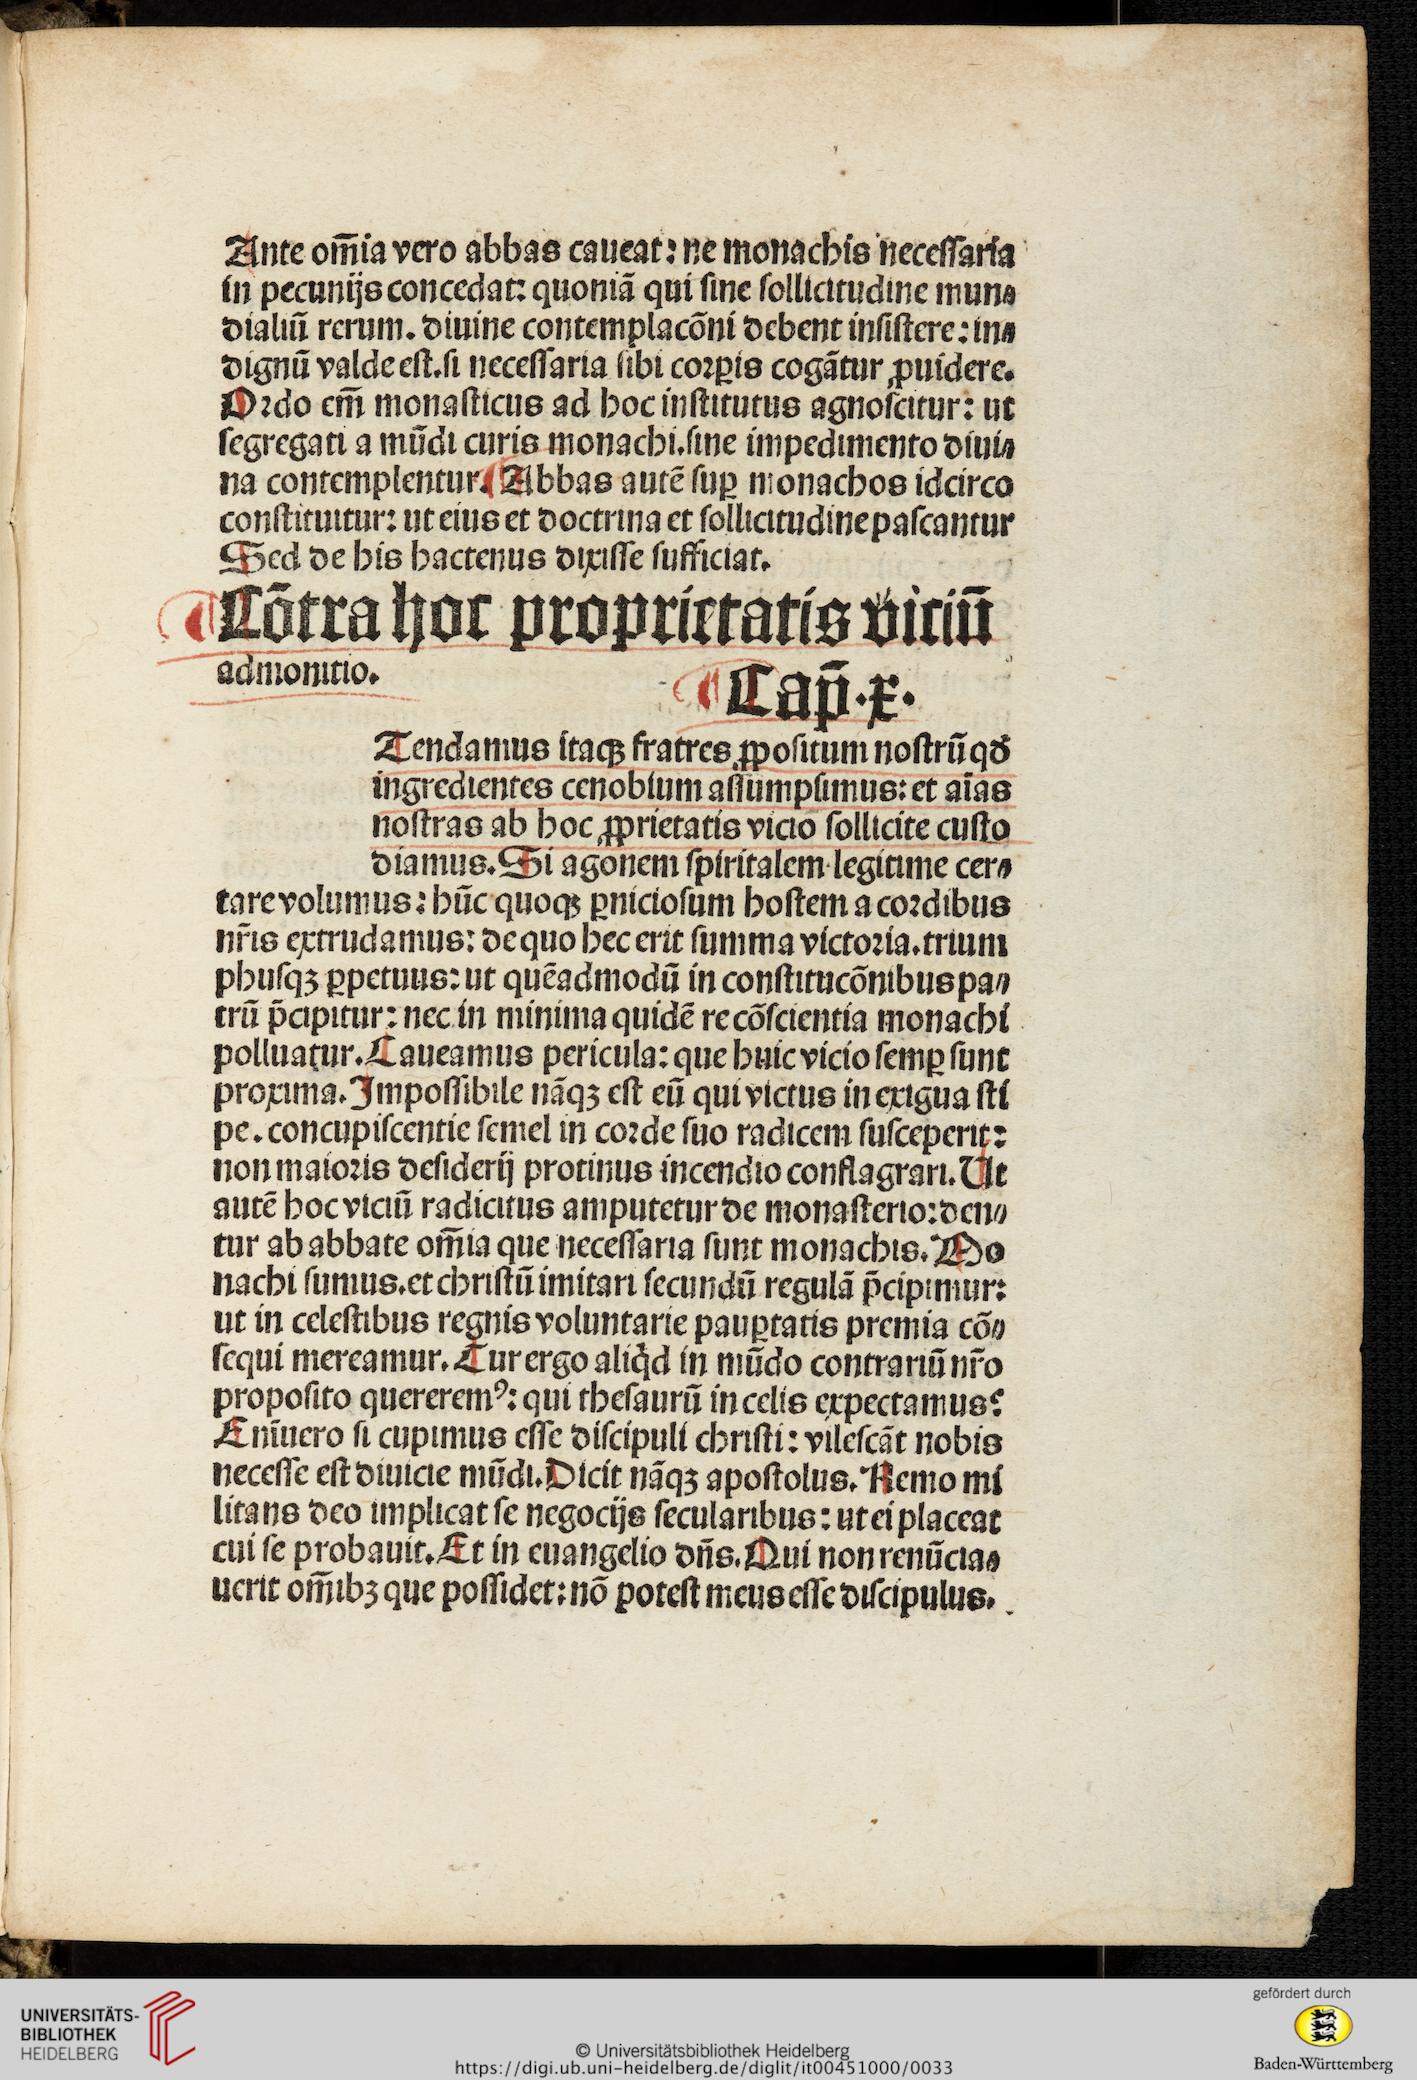 Ante om̄ia vero abbas caueat: ne monachis necessaria
in pecunijs concedat: quoniā qui sine sollicitudine mun⸗
dialiū rerum. diuine contemplacōni debent insistere: in⸗
dignū valde est. si necessaria sibi corꝑis cogātur ꝓuidere.
Ordo em̄ monasticus ad hoc institutus agnoscitur: ut
segregati a mūdi curis monachi. sine impedimento diui⸗
na contemplentur. Abbas autē suꝑ monachos idcirco
constituitur: ut eius et doctrina et sollicitudine pascantur
Sed de his hactenus dixisse sufficiat.
Cōtra hoc proprietatis viciū
admonitio.
Cap̄. x.
Tendamus itaqꝫ fratres ꝓpositum nostrū qđ
ingredientes cenobium assumpsimus: et aīas
nostras ab hoc ꝓprietatis vicio sollicite custo
diamus. Si agonem spiritalem legitime cer⸗
tare volumus: hūc quoqꝫ ꝑniciosum hostem a cordibus
nr̄is extrudamus: de quo hec erit summa victoria. trium
phusqꝫ ꝑpetuus: ut quēadmodū in constitucōnibus pa⸗
trū p̄cipitur: nec in minima quidē re cōscientia monachi
polluatur. Caueamus pericula: que huic vicio semꝑ sunt
proxima. Impossibile nāqꝫ est eū qui victus in exigua sti
pe. concupiscentie semel in corde suo radicem susceperit:
non maioris desiderij protinus incendio conflagrari. Ut
autē hoc viciū radicitus amputetur de monasterio: den⸗
tur ab abbate om̄ia que necessaria sunt monachis. Mo
nachi sumus. et christū imitari secundū regulā p̄cipimur:
ut in celestibus regnis voluntarie pauꝑtatis premia cō⸗
sequi mereamur. Cur ergo aliq̇d in mūdo contrariū nr̄o
proposito quererem⁹: qui thesaurū in celis expectamus?
Enīuero si cupimus esse discipuli christi: vilescāt nobis
necesse est diuicie mūdi. Dicit nāqꝫ apostolus. Nemo mi
litans deo implicat se negocijs secularibus: ut ei placeat
cui se probauit. Et in euangelio dn̄s. Qui non renūcia⸗
uerit om̄ibꝫ que possidet: nō potest meus esse discipulus.
UNIVERSITÄTS-
BIBLIOTHEK
HEIDELBERG
© Universitätsbibliothek Heidelberg
https://digi.ub.uni-heidelberg.de/diglit/it00451000/0033
gefördert durch
Baden-Württemberg